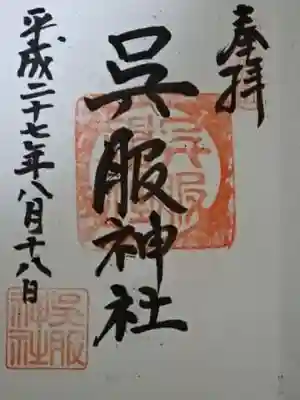 奉拝
呉服神社
平成二十七年八月十八日
呉服
神社